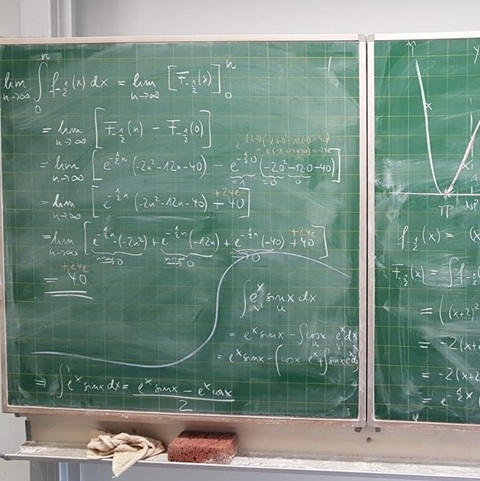 lim n→∞ ∫₀ⁿ f₋½(x) dx = lim n→∞ [F₋½(x)]₀ⁿ
= lim n→∞ [F₋½(n) − F₋½(0)]
= lim n→∞ [e^(-½n) (-2n²-12n-40) − e^(-½·0) (-2·0²-12·0-40)]
= lim n→∞ [e^(-½n) (-2n²-12n-40) + 40]
= lim n→∞ [e^(-½n) (-2n²) + e^(-½n) (-12n) + e^(-½n) (-40) + 40]
= 40
∫ eˣ sinx dx
v' u
= eˣ sinx − ∫ cosx eˣ dx
= eˣ sinx − (cosx eˣ + ∫ sinx eˣ dx)
⇒ ∫ eˣ sinx dx = (eˣ sinx − eˣ cosx)/2
x
TP
f₋½(x) = (x
F₋½(x) = ∫ f₋
= ((x+2)²
= -2(x+
= -2(x+2
= e^(-½x)